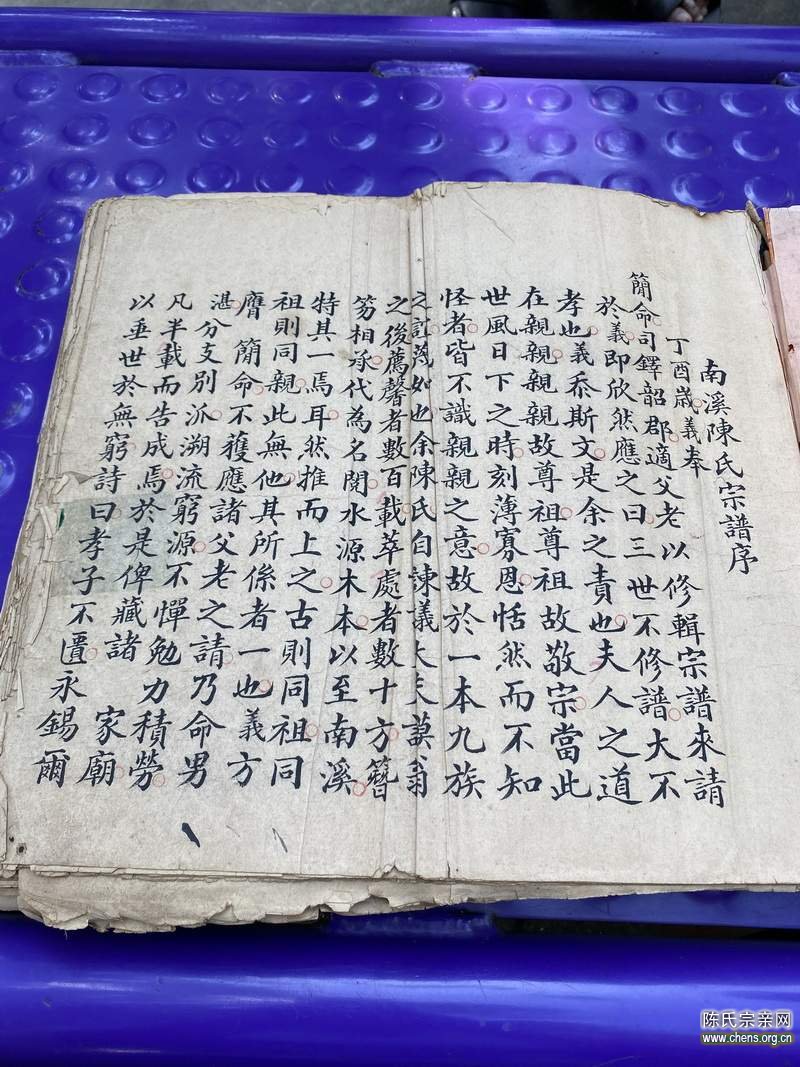 南溪陳氏宗譜序
丁酉歲義奉
簡命司鐸韶郡適父老以修輯宗譜來請
於義即欣然應之曰三世不修譜大不
孝也義忝斯文是余之責也夫人之道
在親親親親故尊祖尊祖故敬宗當此
世風日下之時刻薄寡恩恬然而不知
怪者皆不識親親之意故於一本九族
之如也余陳氏自諫議大夫謨翁
之後薦馨者數百載萃處者數十方簪
笏相承代為名閥水源木本以至南溪
特其一焉耳然推而上之古則同祖同
祖則同親此無他其所係者一也義方
膺 簡命不獲應諸父老之請乃命男
湛分支別派溯流窮源不憚勉力積勞
凡半載而告成焉於是俾藏諸 家廟
以垂世於無窮詩曰孝子不匱永錫爾
陈氏宗亲网
www.chens.org.cn